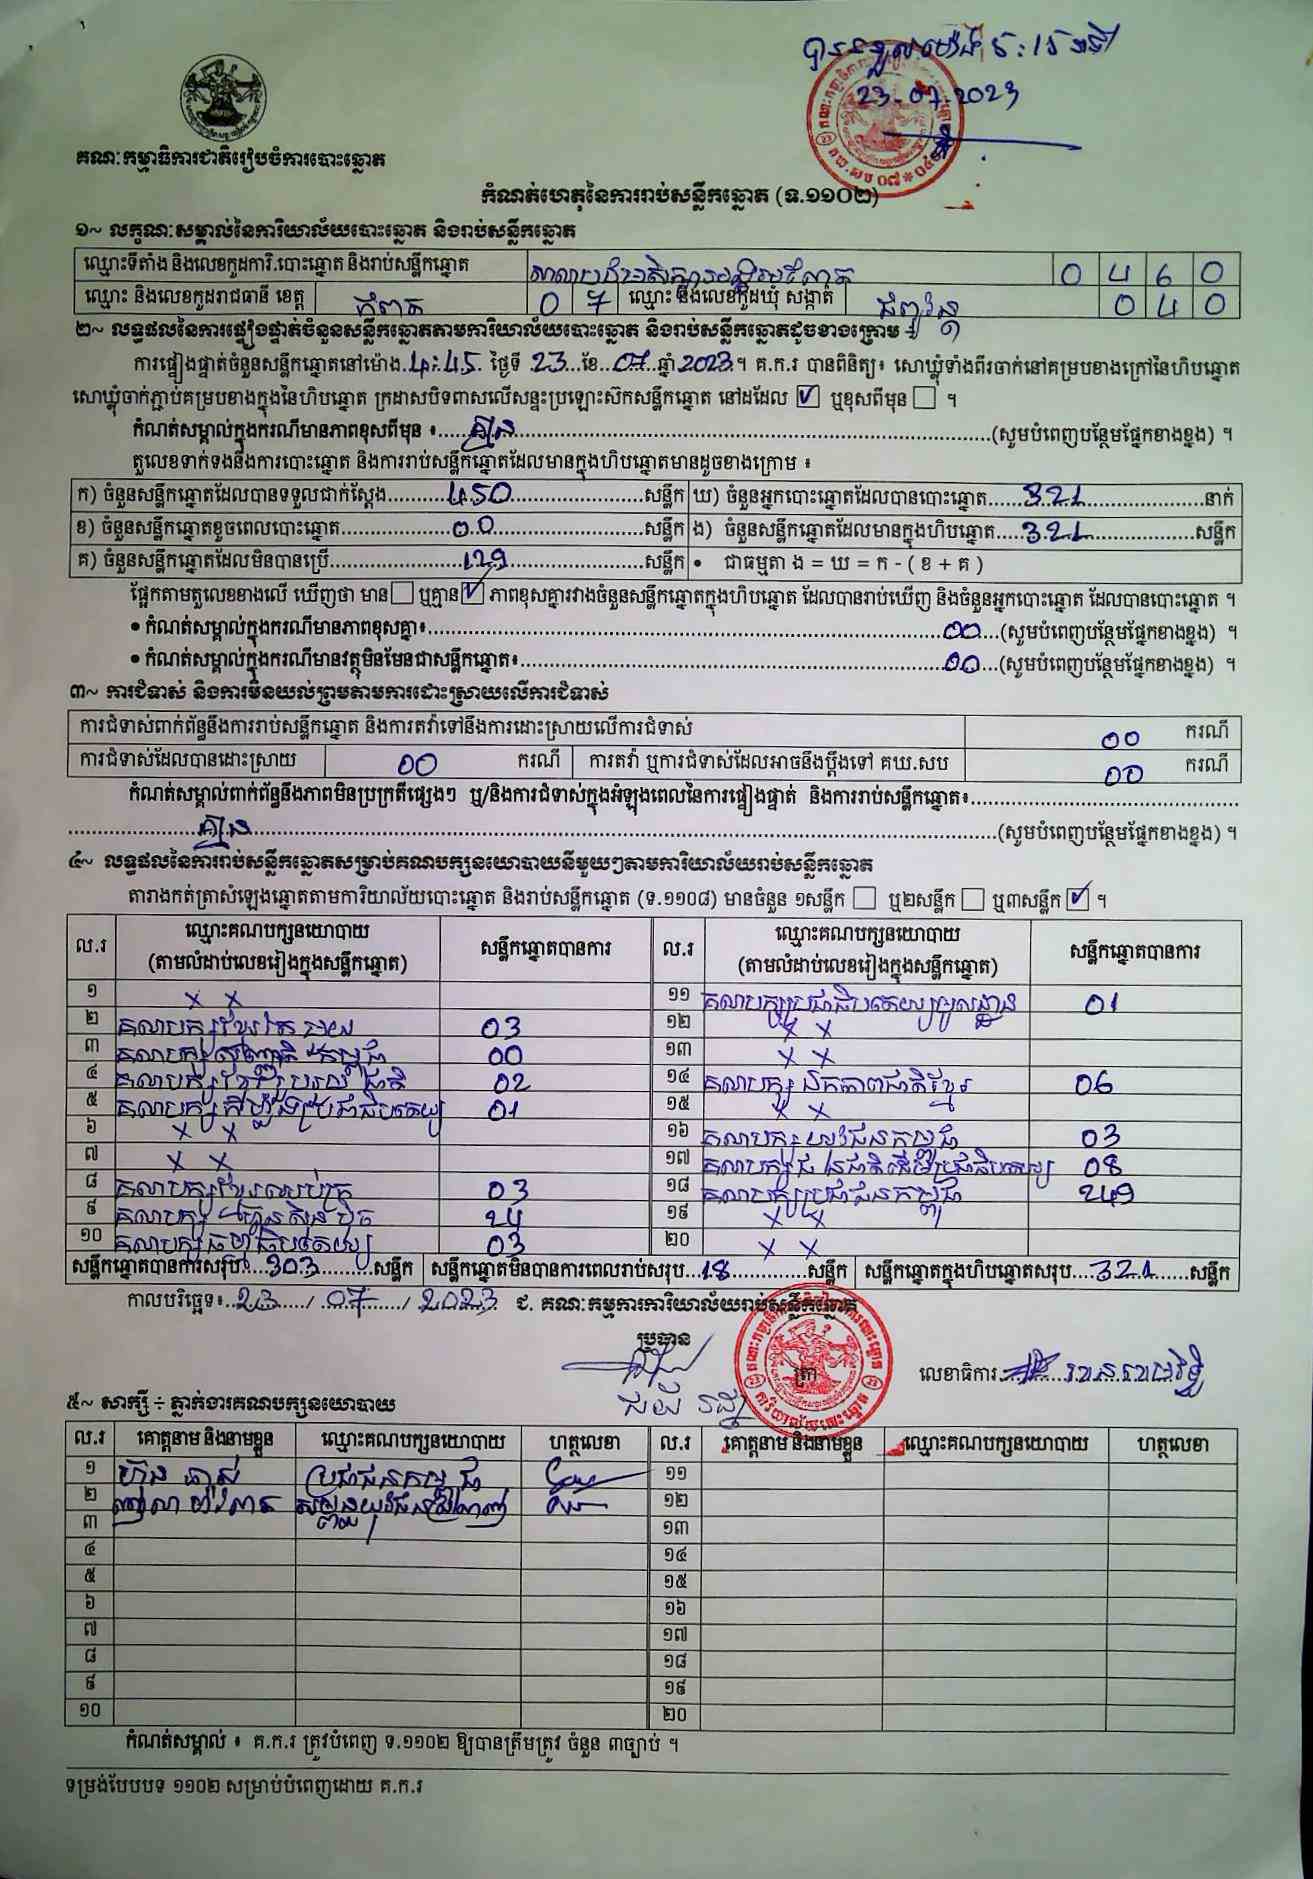 23-07-2023
គណៈកម្មាធិការជាតិរៀបចំការបោះឆ្នោត
កំណត់ហេតុនៃការរាប់សន្លឹកឆ្នោត (ទ.១១០២)
១~ លក្ខណៈសម្គាល់នៃការិយាល័យបោះឆ្នោត និងរាប់សន្លឹកឆ្នោត
ឈ្មោះទីតាំង និងលេខកូដការិ.បោះឆ្នោត និងរាប់សន្លឹកឆ្នោត 0 4 6 0
ឈ្មោះ និងលេខកូដរាជធានី ខេត្ត កំពត 0 7 ឈ្មោះ និងលេខកូដឃុំ សង្កាត់ 0 4 0
២~ លទ្ធផលនៃការផ្ទៀងផ្ទាត់ចំនួនសន្លឹកឆ្នោតតាមការិយាល័យបោះឆ្នោត និងរាប់សន្លឹកឆ្នោតដូចខាងក្រោម ÷
ការផ្ទៀងផ្ទាត់ចំនួនសន្លឹកឆ្នោតនៅម៉ោង 4:45 ថ្ងៃទី 23 ខែ 07 ឆ្នាំ 2023។ គ.ក.រ បានពិនិត្យ៖ សោឃ្លុំទាំងពីរចាក់នៅគម្របខាងក្រៅនៃហិបឆ្នោត
សោឃ្លុំចាក់ភ្ជាប់គម្របខាងក្នុងនៃហិបឆ្នោត ក្រដាសបិទពាសលើសន្ទះប្រឡោះស៊កសន្លឹកឆ្នោត នៅដដែល ☑ ឬខុសពីមុន ☐ ។
កំណត់សម្គាល់ក្នុងករណីមានភាពខុសពីមុន ៖ គ្មាន (សូមបំពេញបន្ថែមផ្នែកខាងខ្នង) ។
តួលេខទាក់ទងនឹងការបោះឆ្នោត និងការរាប់សន្លឹកឆ្នោតដែលមានក្នុងហិបឆ្នោតមានដូចខាងក្រោម ៖
ក) ចំនួនសន្លឹកឆ្នោតដែលបានទទួលជាក់ស្តែង 450 សន្លឹក ឃ) ចំនួនអ្នកបោះឆ្នោតដែលបានបោះឆ្នោត 321 នាក់
ខ) ចំនួនសន្លឹកឆ្នោតខូចពេលបោះឆ្នោត 00 សន្លឹក ង) ចំនួនសន្លឹកឆ្នោតដែលមានក្នុងហិបឆ្នោត 321 សន្លឹក
គ) ចំនួនសន្លឹកឆ្នោតដែលមិនបានប្រើ 129 សន្លឹក • ជាធម្មតា ង = ឃ = ក - ( ខ + គ )
ផ្អែកតាមតួលេខខាងលើ ឃើញថា មាន ☐ ឬគ្មាន ☑ ភាពខុសគ្នារវាងចំនួនសន្លឹកឆ្នោតក្នុងហិបឆ្នោត ដែលបានរាប់ឃើញ និងចំនួនអ្នកបោះឆ្នោត ដែលបានបោះឆ្នោត ។
• កំណត់សម្គាល់ក្នុងករណីមានភាពខុសគ្នា៖ 00 (សូមបំពេញបន្ថែមផ្នែកខាងខ្នង) ។
• កំណត់សម្គាល់ក្នុងករណីមានវត្ថុមិនមែនជាសន្លឹកឆ្នោត៖ 00 (សូមបំពេញបន្ថែមផ្នែកខាងខ្នង) ។
៣~ ការជំទាស់ និងការមិនយល់ព្រមតាមការដោះស្រាយលើការជំទាស់
ការជំទាស់ពាក់ព័ន្ធនឹងការរាប់សន្លឹកឆ្នោត និងការតវ៉ាទៅនឹងការដោះស្រាយលើការជំទាស់ 00 ករណី
ការជំទាស់ដែលបានដោះស្រាយ 00 ករណី ការតវ៉ា ឬការជំទាស់ដែលអាចនឹងប្តឹងទៅ គឃ.សប 00 ករណី
កំណត់សម្គាល់ពាក់ព័ន្ធនឹងភាពមិនប្រក្រតីផ្សេងៗ ឬ/និងការជំទាស់ក្នុងអំឡុងពេលនៃការផ្ទៀងផ្ទាត់ និងការរាប់សន្លឹកឆ្នោត៖
គ្មាន (សូមបំពេញបន្ថែមផ្នែកខាងខ្នង) ។
៤~ លទ្ធផលនៃការរាប់សន្លឹកឆ្នោតសម្រាប់គណបក្សនយោបាយនីមួយៗតាមការិយាល័យរាប់សន្លឹកឆ្នោត
តារាងកត់ត្រាសំឡេងឆ្នោតតាមការិយាល័យបោះឆ្នោត និងរាប់សន្លឹកឆ្នោត (ទ.១១០៨) មានចំនួន ១សន្លឹក ☐ ឬ២សន្លឹក ☐ ឬ៣សន្លឹក ☑ ។
ល.រ ឈ្មោះគណបក្សនយោបាយ (តាមលំដាប់លេខរៀងក្នុងសន្លឹកឆ្នោត) សន្លឹកឆ្នោតបានការ ល.រ ឈ្មោះគណបក្សនយោបាយ (តាមលំដាប់លេខរៀងក្នុងសន្លឹកឆ្នោត) សន្លឹកឆ្នោតបានការ
១ x x ១១ គណបក្សប្រជាធិបតេយ្យមូលដ្ឋាន 01
២ គណបក្សខ្មែរតែមួយ 03 ១២ x x
៣ គណបក្ស 00 ១៣ x x
៤ គណបក្ស 02 ១៤ គណបក្សឯកភាពជាតិខ្មែរ 06
៥ គណបក្សកម្លាំងប្រជាធិបតេយ្យ 01 ១៥ x x
៦ x x ១៦ គណបក្សយុវជនកម្ពុជា 03
៧ x x ១៧ គណបក្ស 08
៨ គណបក្សខ្មែរឈប់ក្រ 03 ១៨ គណបក្សប្រជាជនកម្ពុជា 249
៩ គណបក្សហ៊្វុនស៊ិនប៉ិច 24 ១៩ x x
១០ គណបក្សធម្មាធិបតេយ្យ 03 ២០ x x
សន្លឹកឆ្នោតបានការសរុប 303 សន្លឹក សន្លឹកឆ្នោតមិនបានការពេលរាប់សរុប 18 សន្លឹក សន្លឹកឆ្នោតក្នុងហិបឆ្នោតសរុប 321 សន្លឹក
កាលបរិច្ឆេទ៖ 23 / 07 / 2023 ជ. គណៈកម្មការការិយាល័យរាប់សន្លឹកឆ្នោត
ប្រធាន ត្រា លេខាធិការ
៥~ សាក្សី ÷ ភ្នាក់ងារគណបក្សនយោបាយ
ល.រ គោត្តនាម និងនាមខ្លួន ឈ្មោះគណបក្សនយោបាយ ហត្ថលេខា ល.រ គោត្តនាម និងនាមខ្លួន ឈ្មោះគណបក្សនយោបាយ ហត្ថលេខា
១ ប្រជាជនកម្ពុជា ១១
២ ១២
៣ ១៣
៤ ១៤
៥ ១៥
៦ ១៦
៧ ១៧
៨ ១៨
៩ ១៩
១០ ២០
កំណត់សម្គាល់ ៖ គ.ក.រ ត្រូវបំពេញ ទ.១១០២ ឱ្យបានត្រឹមត្រូវ ចំនួន ៣ច្បាប់ ។
ទម្រង់បែបបទ ១១០២ សម្រាប់បំពេញដោយ គ.ក.រ